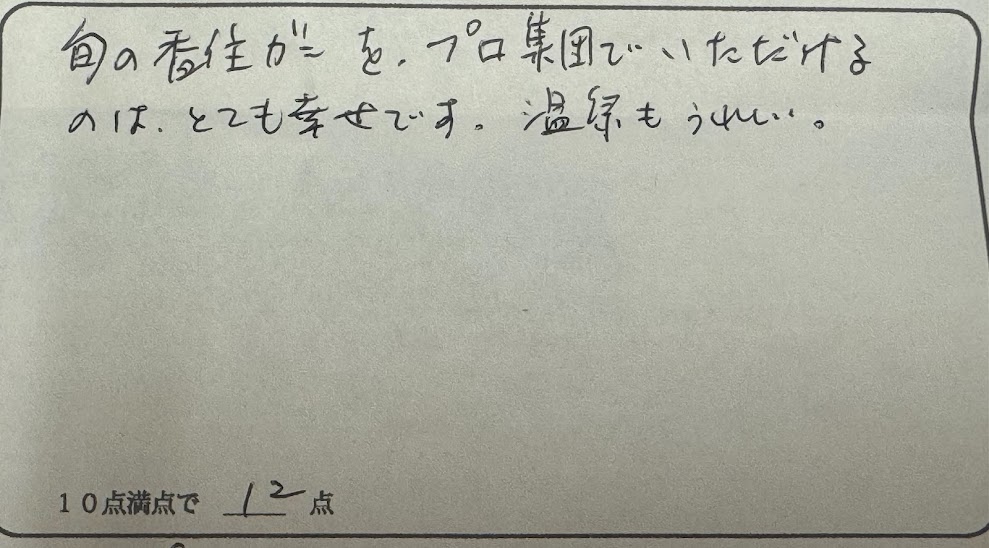 旬の香住ガニを、プロ集団でいただける
のは、とても幸せです。温泉もうれしい。
10点満点で 12 点